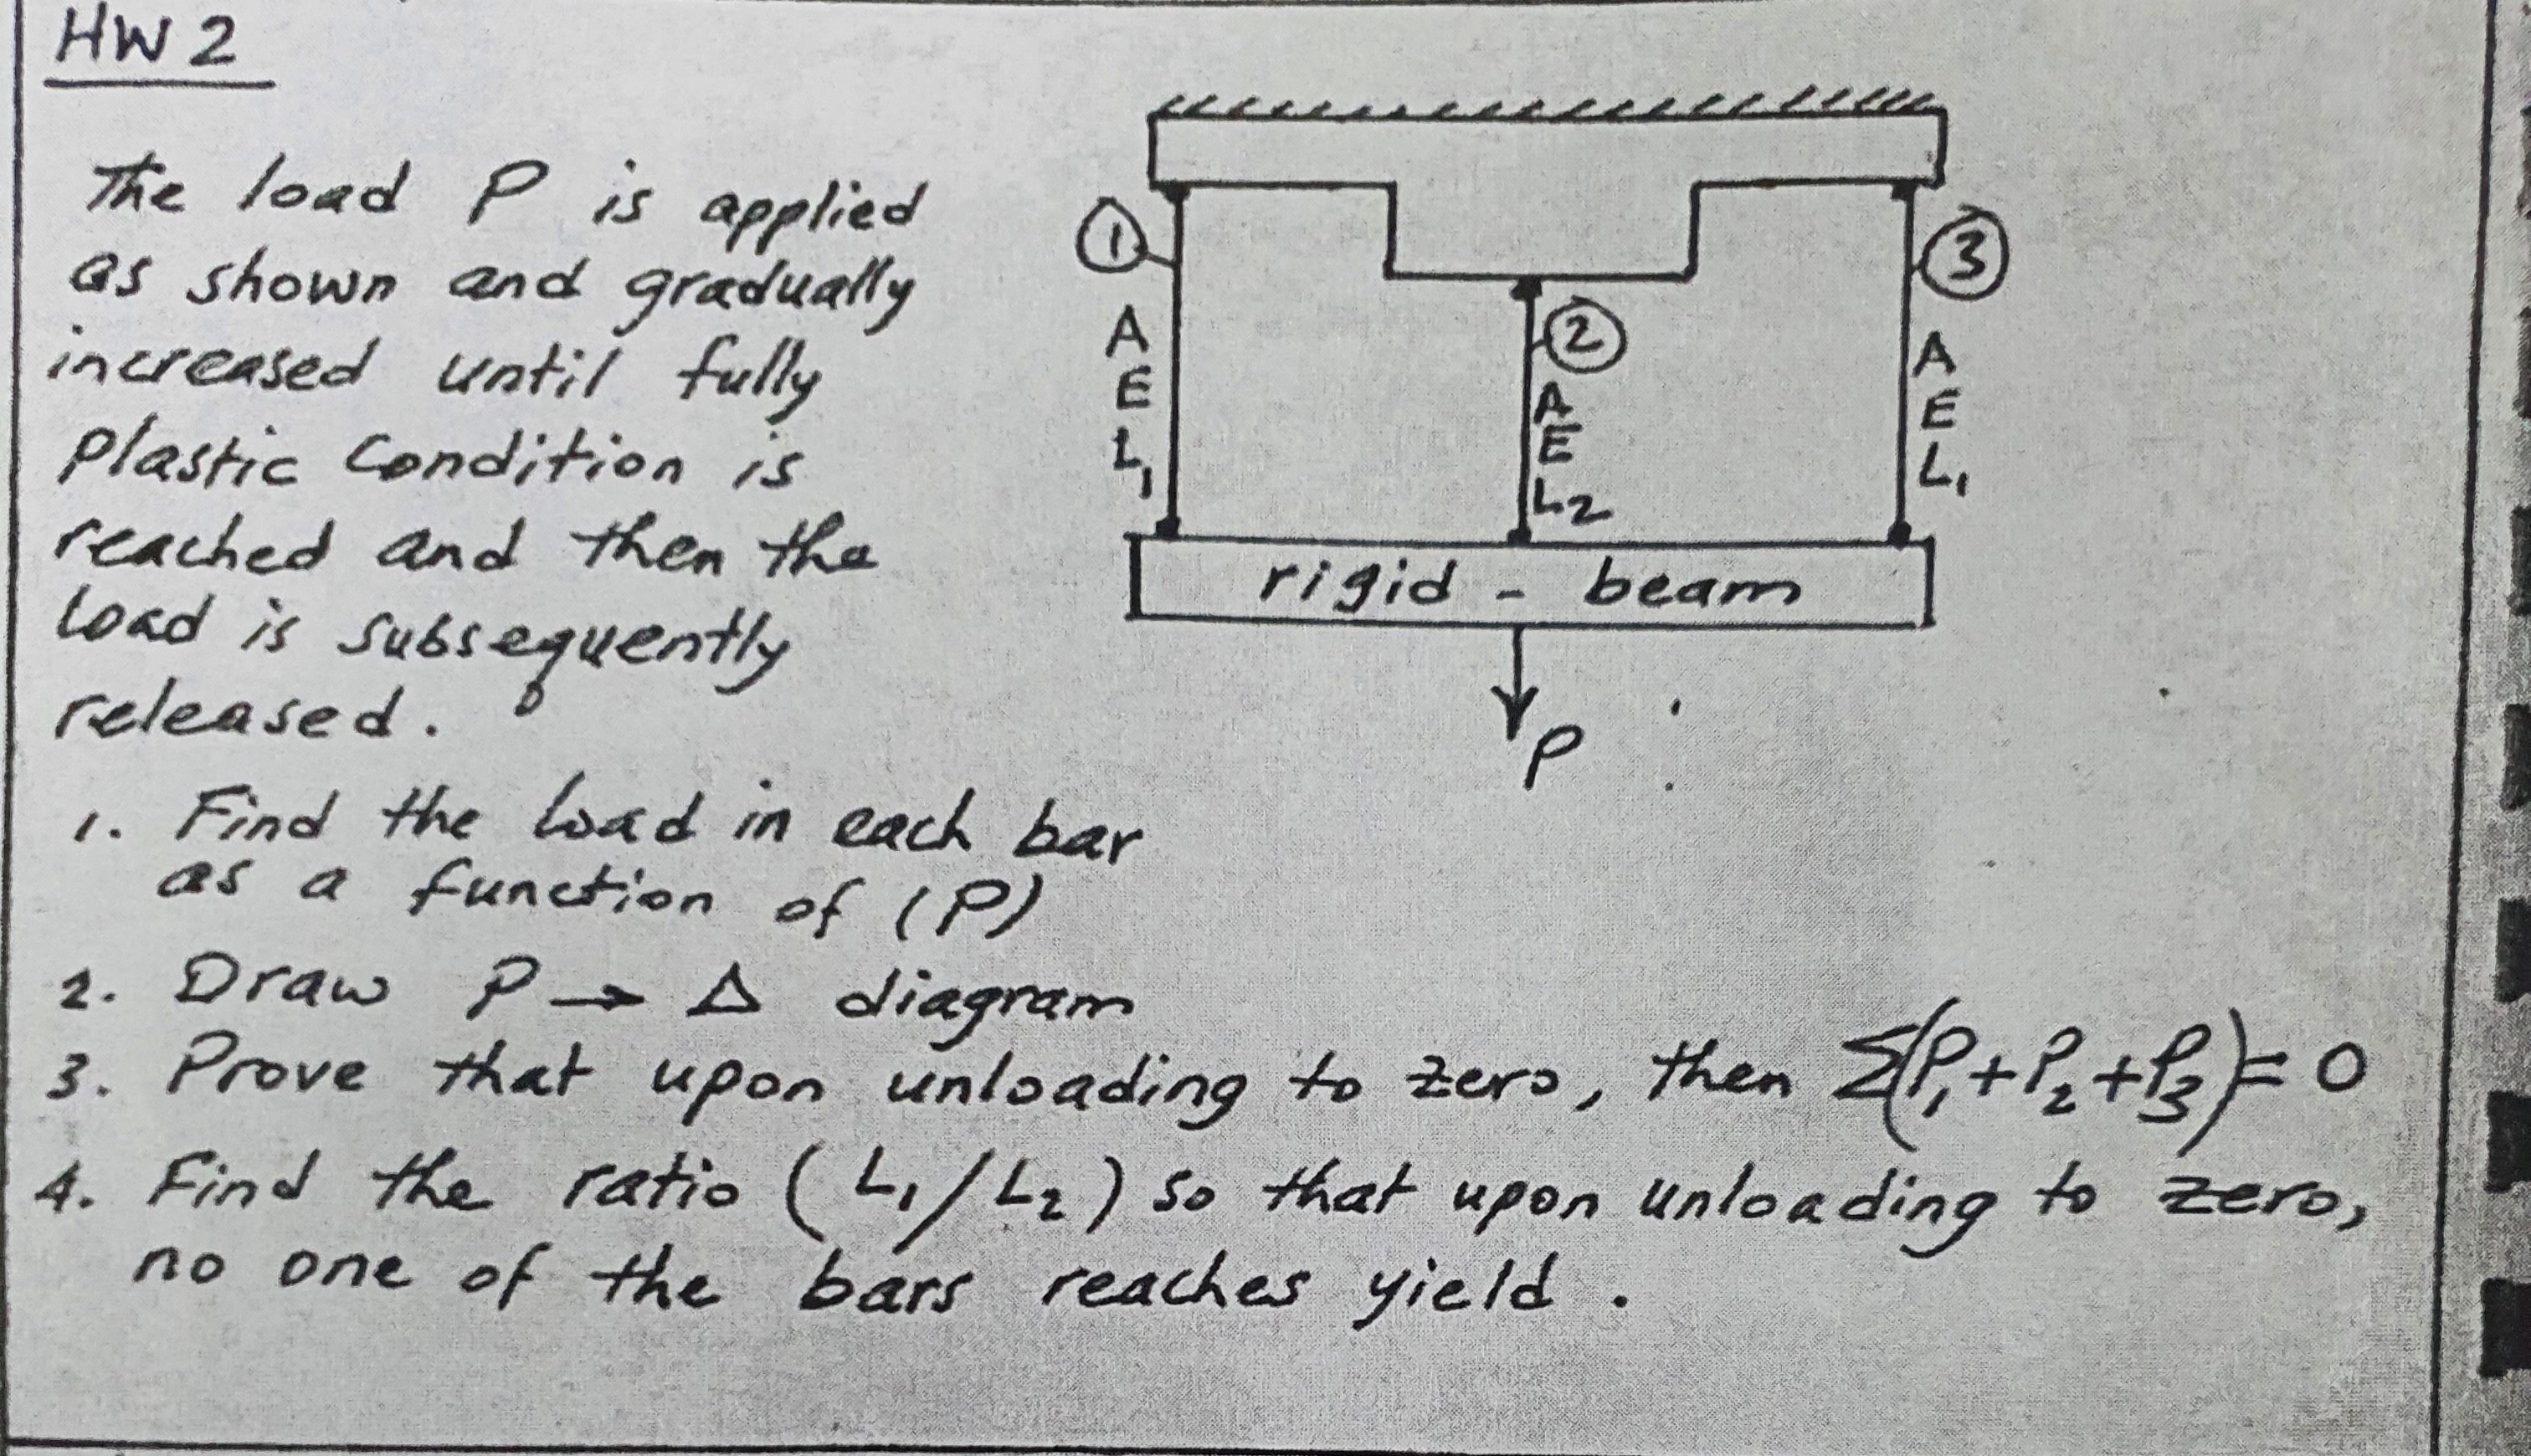 HW 2
The load P is applied
as shown and gradually
increased until fully
plastic condition is
reached and then the
load is subsequently
released.
1
A
E
L₁
2
A
E
L₂
3
A
E
L₁
rigid - beam
P
1. Find the load in each bar
as a function of (P)
2. Draw P → Δ diagram
3. Prove that upon unloading to zero, then Σ(P₁+P₂+P₃)=0
4. Find the ratio (L₁/L₂) so that upon unloading to zero,
no one of the bars reaches yield.